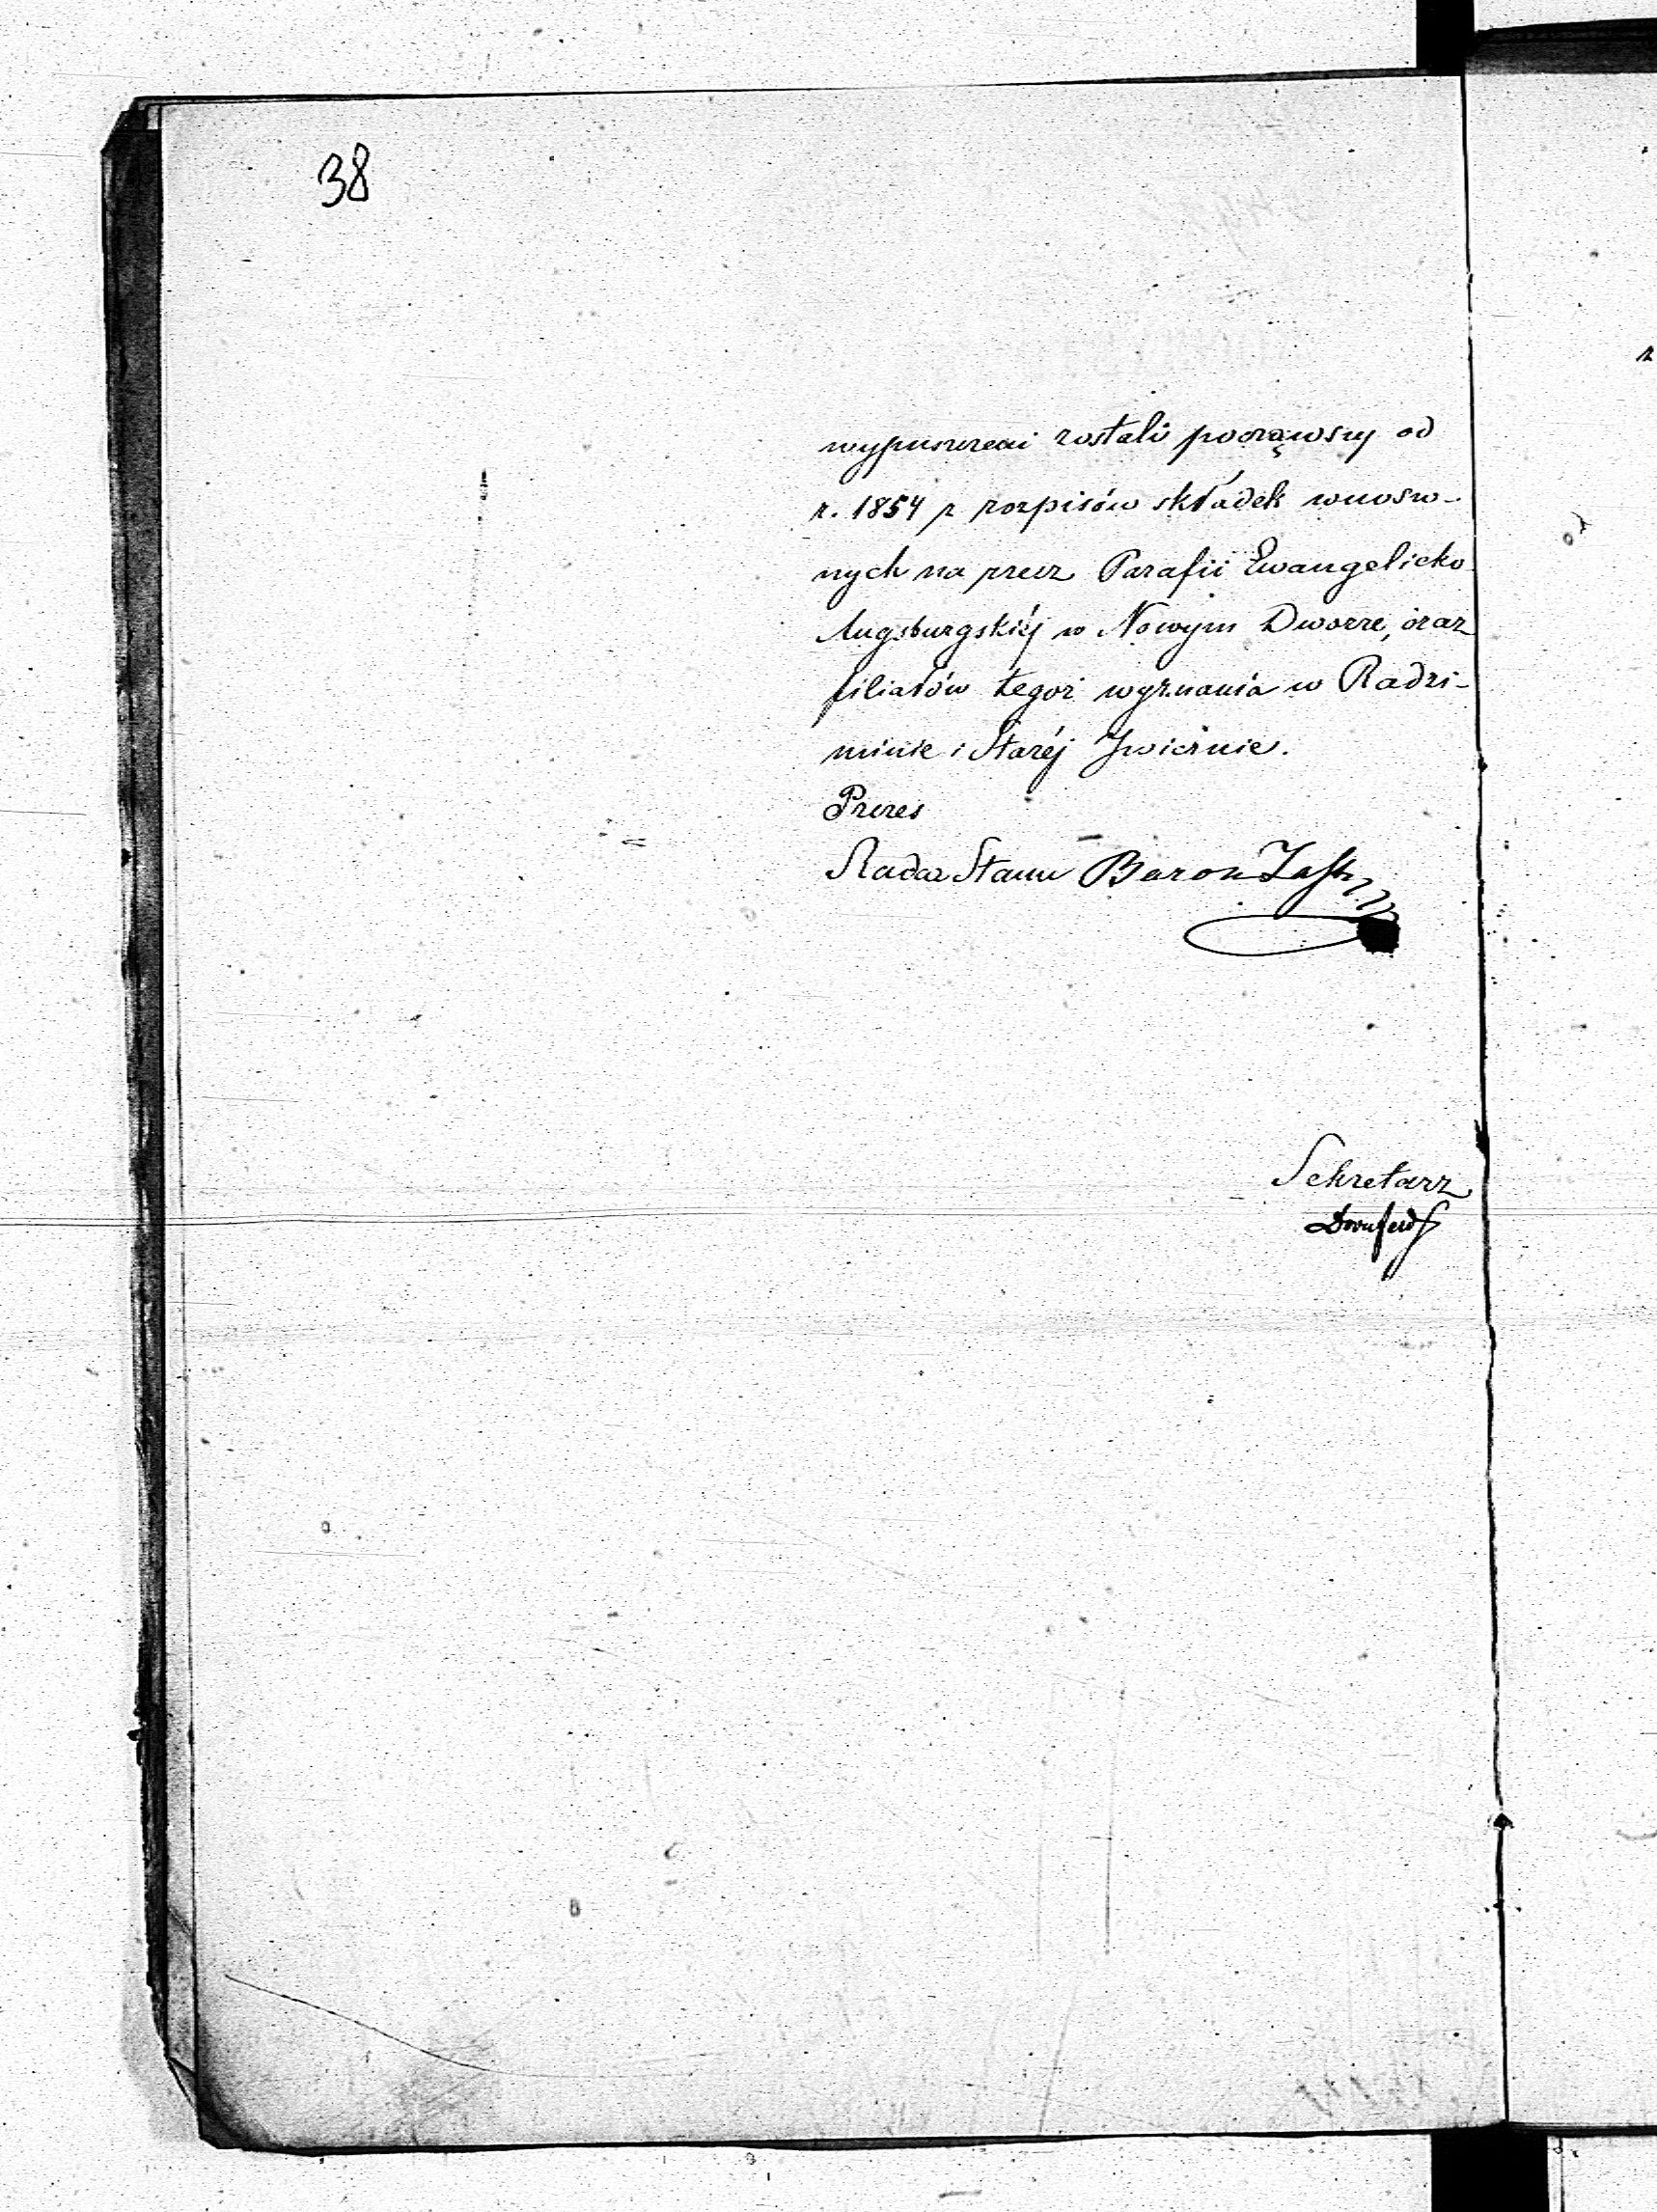 38
wypuszczeni zostali począwszy od
r. 1854 z rozpisów składek wnoszo-
nych na rzecz Parafii Ewangelicko
Augsburgskiéj w Nowym Dworze, oraz
filiałów tegoż wyznania w Radzi-
minie i Staréj Iwicznie.
Prezes
Radca Stanu Baron
Sekretarz